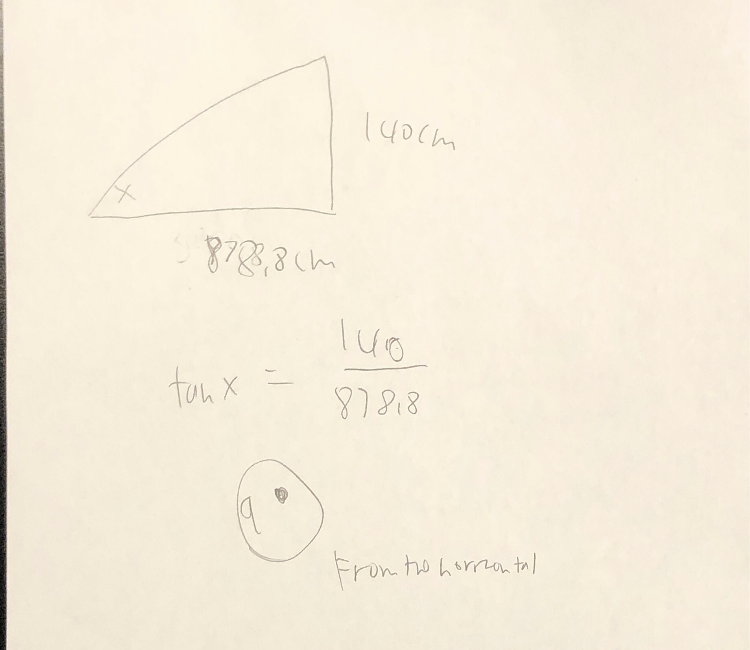 x
140cm
878,8cm
tan x = 140
878,8
9°
From the horizontal